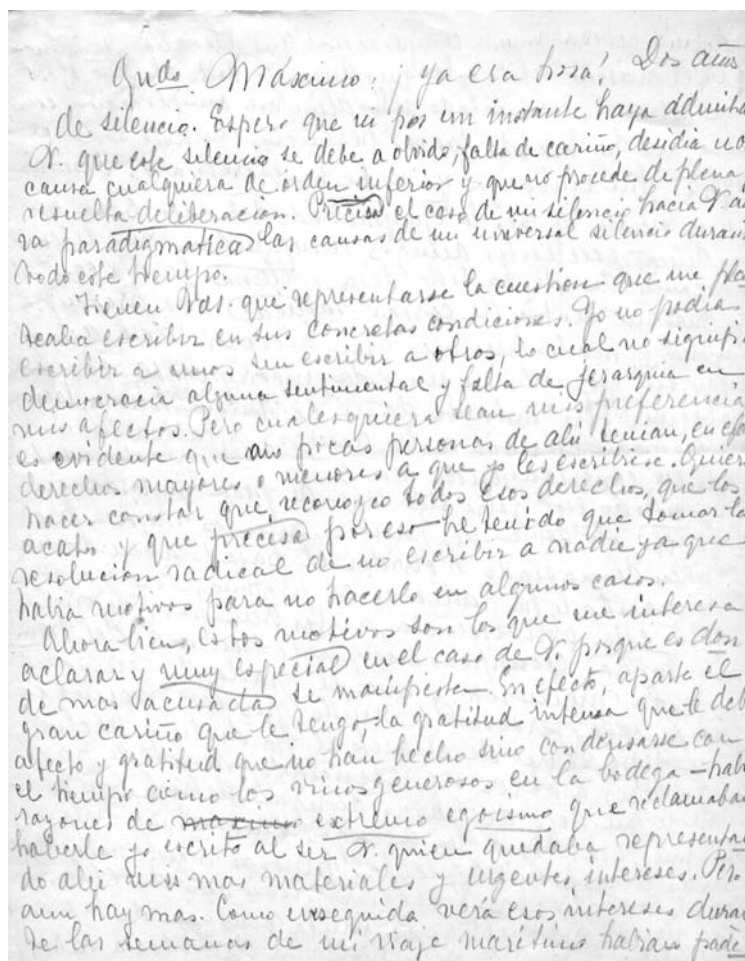 Qudo. Máximo: ¡ya era hora! Dos años
de silencio. Espero que ni por un instante haya admitid
V. que este silencio se debe a olvido, falta de cariño, desidia u o
causa cualquiera de orden inferior y que no procede de plena
resuelta deliberación. Precisa el caso de mi silencio hacia V.
ra paradigmatica las causas de mi universal silencio duran
todo este tiempo.
Tienen Vds. que representarse la cuestion que me pla
teaba escribir en sus concretas condiciones. Yo no podia
escribir a unos sin escribir a otros, lo cual no signifi
democracia alguna sentimental y falta de jerarquia en
mis afectos. Pero cualesquiera sean mis preferencia
es evidente que no pocas personas de ahi tenian, en efe
derechos mayores o menores a que yo les escribiese. Quier
hacer constar que reconozco todos esos derechos, que los
acato y que precisa por eso he tenido que tomar la
resolucion radical de no escribir a nadie ya que
habia motivos para no hacerlo en algunos casos.
Ahora bien, estos motivos son los que me interesa
aclarar y muy especial en el caso de V. porque es don
de mas acusacta se manifiesta. En efecto, aparte el
gran cariño que le tengo, la gratitud intensa que le deb
afecto y gratitud que no han hecho sino condensarse con
el tiempo como los vinos generosos en la bodega – habi
razones de extremo egoismo que reclamaban
haberle yo escrito al ser V. quien quedaba representan
do ahi mis mas materiales y urgentes intereses. Pero
aun hay mas. Como enseguida verá esos intereses duran
te las semanas de mi viaje maritimo habian pade